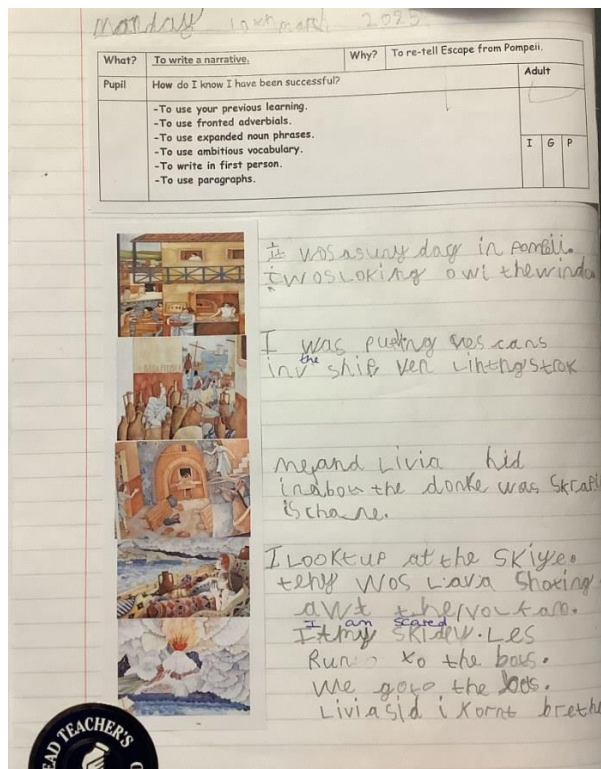 monday march 2025
What? To write a narrative. Why? To re-tell Escape from Pompeii.
Pupil How do I know I have been successful? Adult
-To use your previous learning.
-To use fronted adverbials.
-To use expanded noun phrases.
-To use ambitious vocabulary.
-To write in first person.
-To use paragraphs.
I G P
it wos a suny day in Pompeii.
i wos loking owt the windo
I was puting
the
in ship ven lihtng strok
me and Livia hid
the donke was Skrapi
is
I LOOKt up at the Skiye.
wos Lava Shoting
awt the
I am scared
Les
Run to the
we go to the
Livia sid i Kornt breth
HEAD TEACHER'S